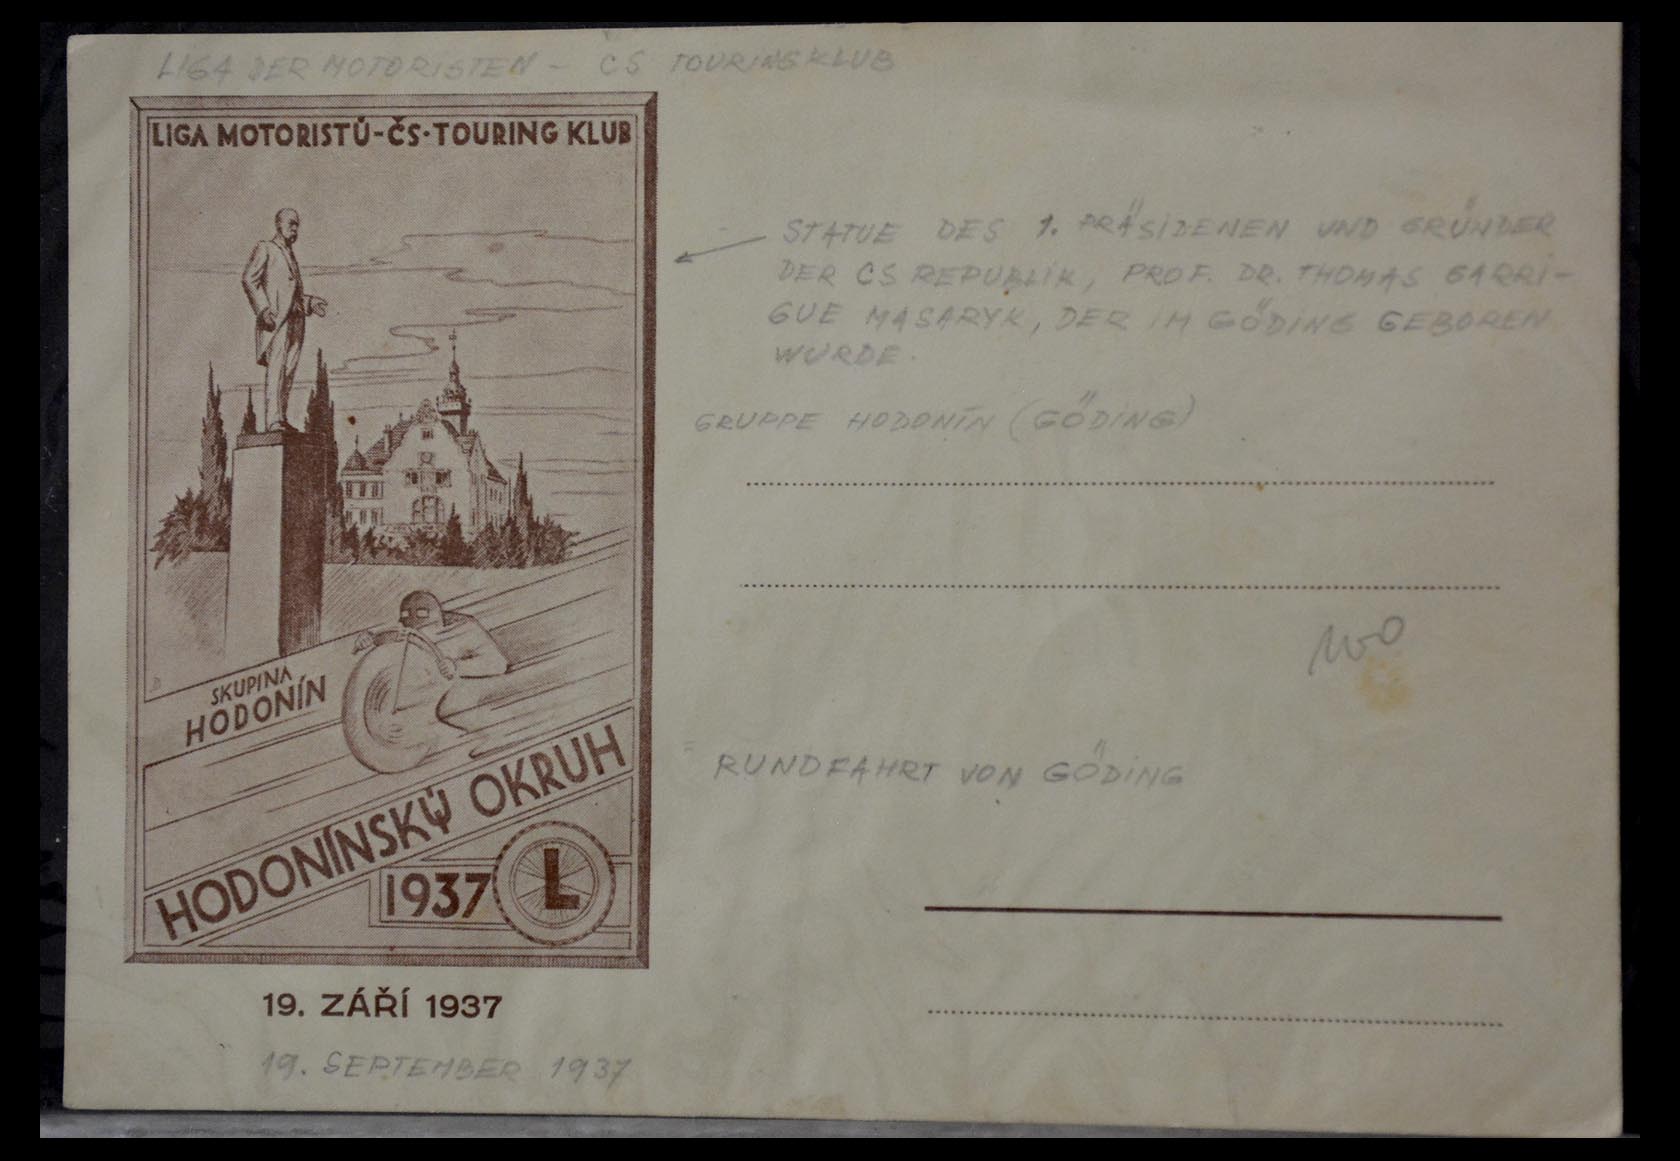 LIGA DER MOTORISTEN - ČS TOURINGKLUB
LIGA MOTORISTŮ-ČS·TOURING KLUB
STATUE DES 1. PRÄSIDENEN UND GRÜNDER
DER CS REPUBLIK, PROF. DR. THOMAS GARRI-
GUE MASARYK, DER IM GÖDING GEBOREN
WURDE.
GRUPPE HODONÍN (GÖDING)
SKUPINA
HODONÍN
RUNDFAHRT VON GÖDING
HODONÍNSKÝ OKRUH
1937 L
19. ZÁŘÍ 1937
19. SEPTEMBER 1937